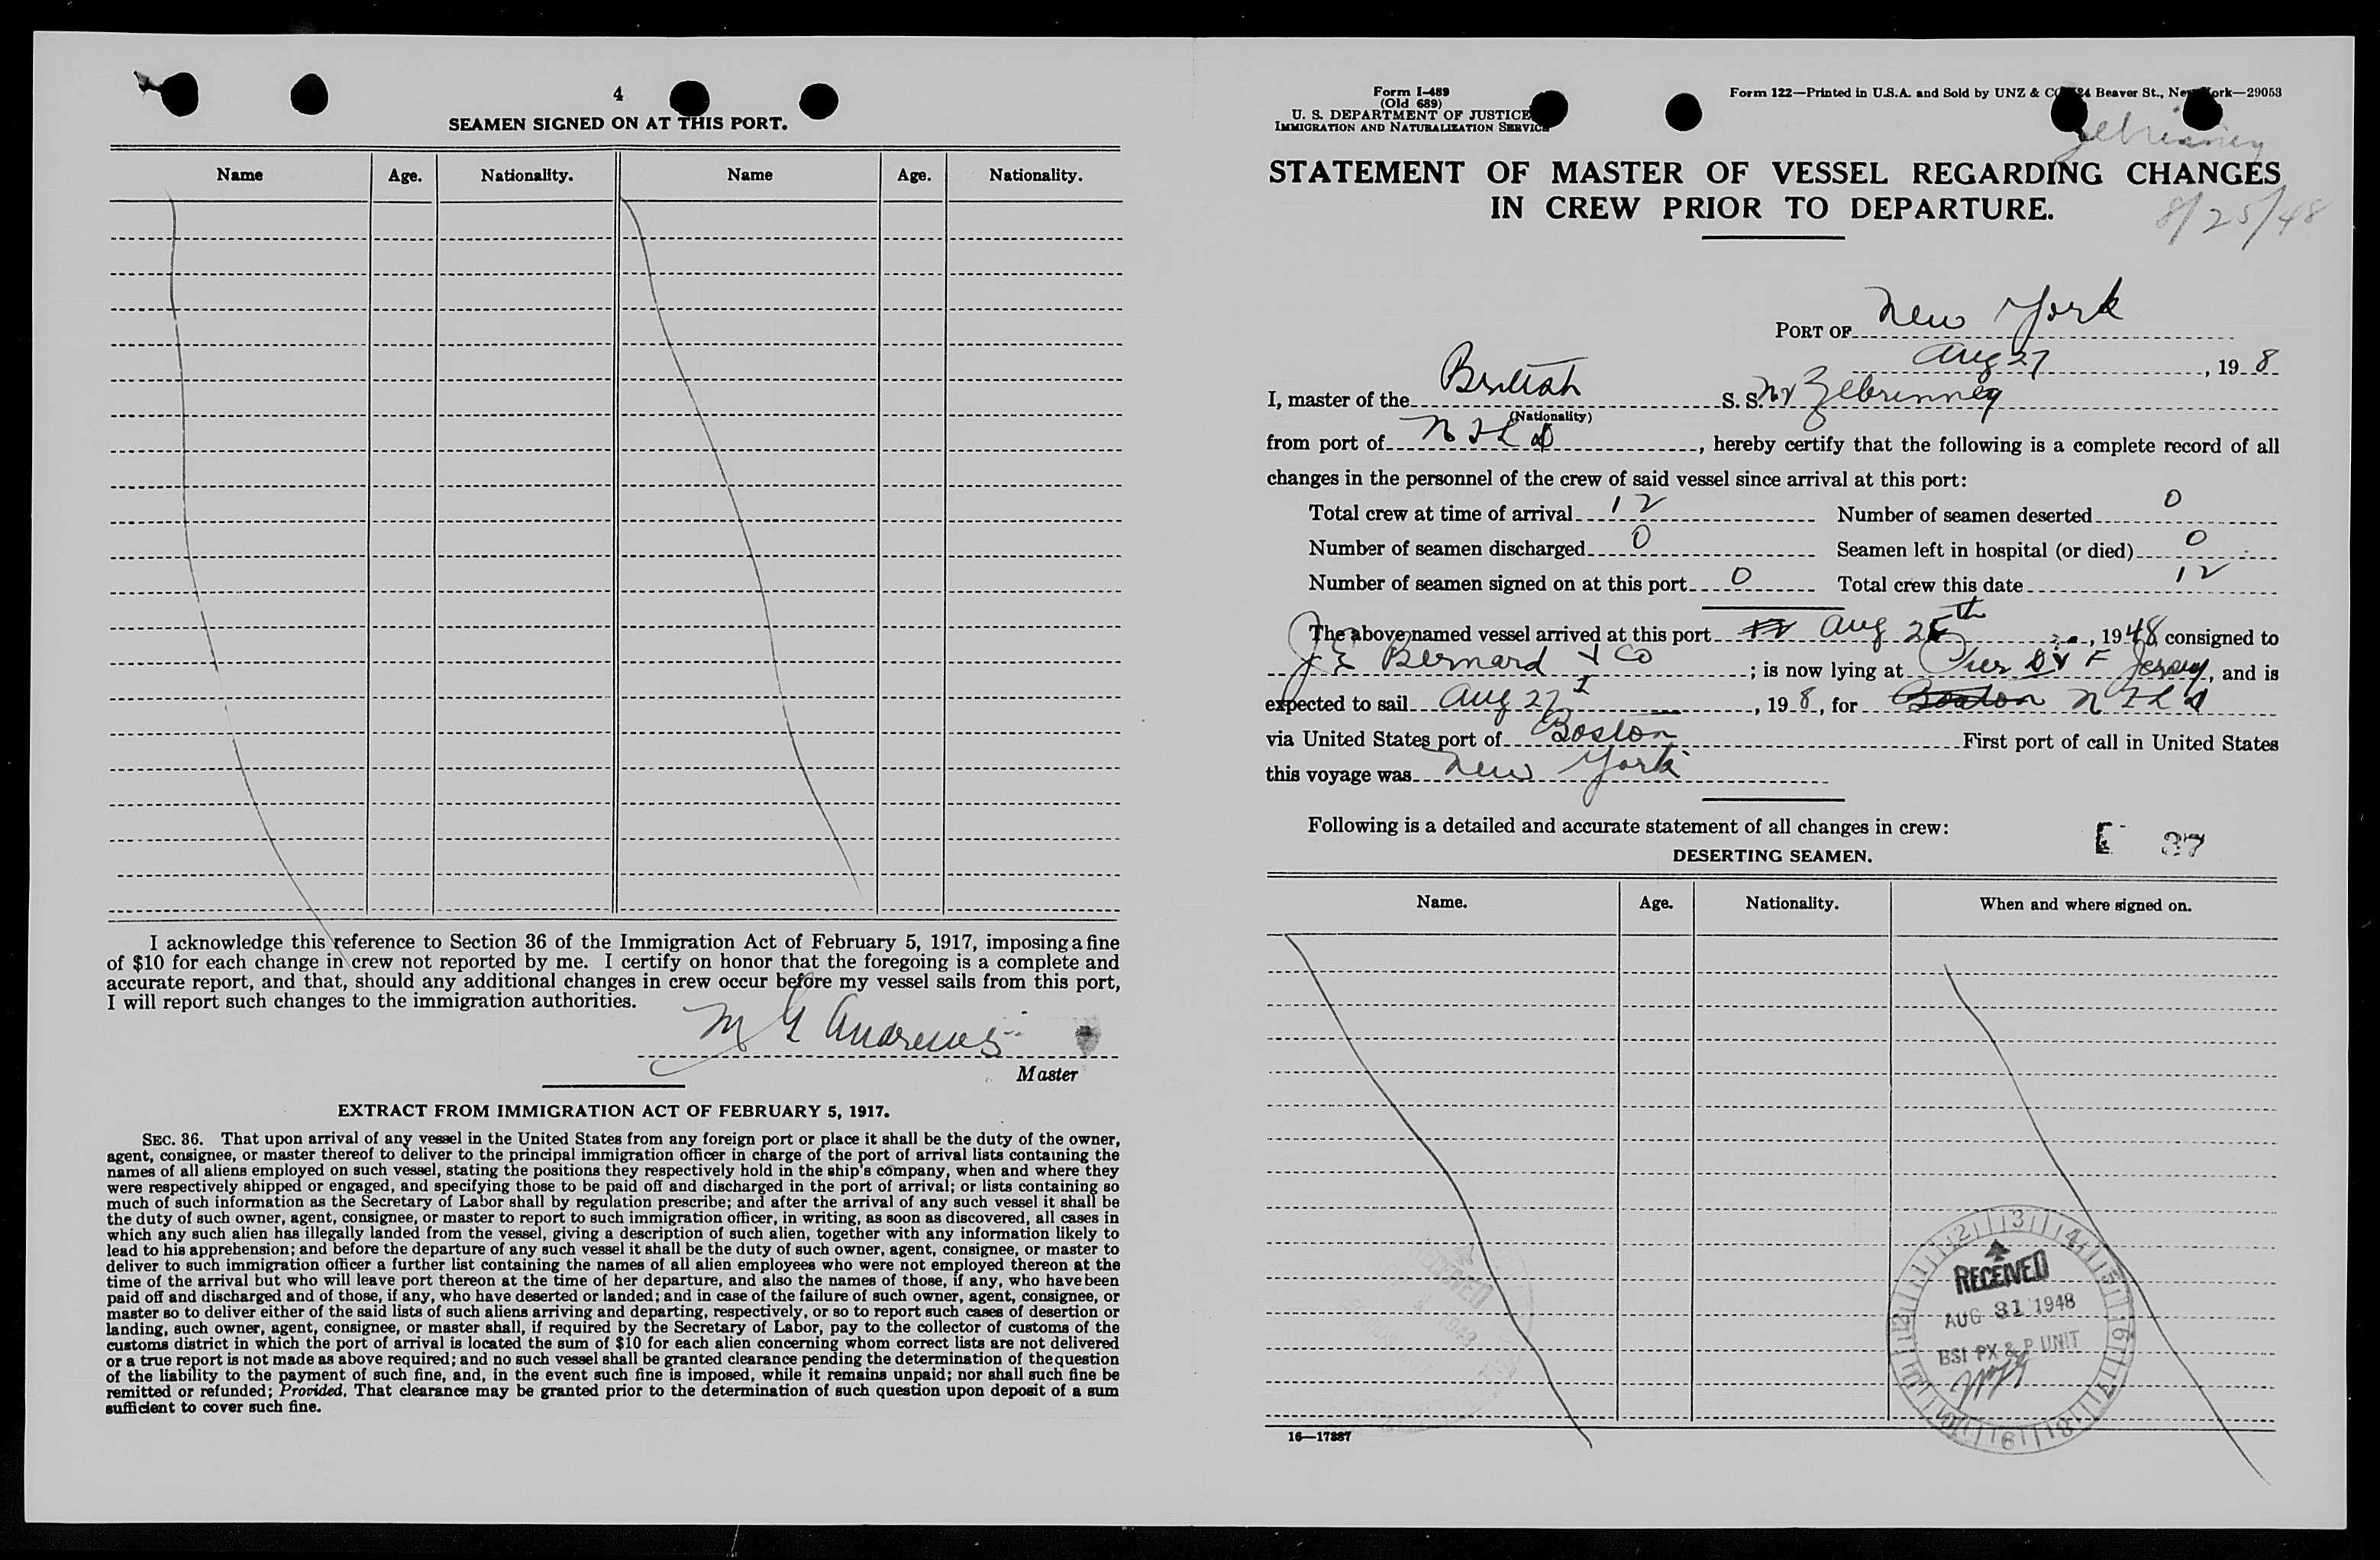 4
SEAMEN SIGNED ON AT THIS PORT.
Name Age. Nationality. Name Age. Nationality.
I acknowledge this reference to Section 36 of the Immigration Act of February 5, 1917, imposing a fine
of $10 for each change in crew not reported by me. I certify on honor that the foregoing is a complete and
accurate report, and that, should any additional changes in crew occur before my vessel sails from this port,
I will report such changes to the immigration authorities.
M G Andrews
Master
EXTRACT FROM IMMIGRATION ACT OF FEBRUARY 5, 1917.
SEC. 36. That upon arrival of any vessel in the United States from any foreign port or place it shall be the duty of the owner,
agent, consignee, or master thereof to deliver to the principal immigration officer in charge of the port of arrival lists containing the
names of all aliens employed on such vessel, stating the positions they respectively hold in the ship's company, when and where they
were respectively shipped or engaged, and specifying those to be paid off and discharged in the port of arrival; or lists containing so
much of such information as the Secretary of Labor shall by regulation prescribe; and after the arrival of any such vessel it shall be
the duty of such owner, agent, consignee, or master to report to such immigration officer, in writing, as soon as discovered, all cases in
which any such alien has illegally landed from the vessel, giving a description of such alien, together with any information likely to
lead to his apprehension; and before the departure of any such vessel it shall be the duty of such owner, agent, consignee, or master to
deliver to such immigration officer a further list containing the names of all alien employees who were not employed thereon at the
time of the arrival but who will leave port thereon at the time of her departure, and also the names of those, if any, who have been
paid off and discharged and of those, if any, who have deserted or landed; and in case of the failure of such owner, agent, consignee, or
master so to deliver either of the said lists of such aliens arriving and departing, respectively, or so to report such cases of desertion or
landing, such owner, agent, consignee, or master shall, if required by the Secretary of Labor, pay to the collector of customs of the
customs district in which the port of arrival is located the sum of $10 for each alien concerning whom correct lists are not delivered
or a true report is not made as above required; and no such vessel shall be granted clearance pending the determination of the question
of the liability to the payment of such fine, and, in the event such fine is imposed, while it remains unpaid; nor shall such fine be
remitted or refunded; Provided, That clearance may be granted prior to the determination of such question upon deposit of a sum
sufficient to cover such fine.
Form I-489
(Old 689)
U. S. DEPARTMENT OF JUSTICE
IMMIGRATION AND NATURALIZATION SERVICE
Form 122—Printed in U.S.A. and Sold by UNZ & CO 24 Beaver St., New York—29053
Zebrinney
STATEMENT OF MASTER OF VESSEL REGARDING CHANGES
IN CREW PRIOR TO DEPARTURE.
8/25/48
PORT OF New York
Aug 27, 19 8
I, master of the British S. S. MV Zebrinney
(Nationality)
from port of NFLD, hereby certify that the following is a complete record of all
changes in the personnel of the crew of said vessel since arrival at this port:
Total crew at time of arrival 12 Number of seamen deserted 0
Number of seamen discharged 0 Seamen left in hospital (or died) 0
Number of seamen signed on at this port 0 Total crew this date 12
The above named vessel arrived at this port Aug 25th, 1948 consigned to
J E Bernard & Co; is now lying at Pier D & F Jersey, and is
expected to sail Aug 27, 19 8, for Boston NFLD
via United States port of Boston First port of call in United States
this voyage was New York
Following is a detailed and accurate statement of all changes in crew:
37
DESERTING SEAMEN.
Name. Age. Nationality. When and where signed on.
RECEIVED
AUG 31 1948
BSI PX & P UNIT
16—17887